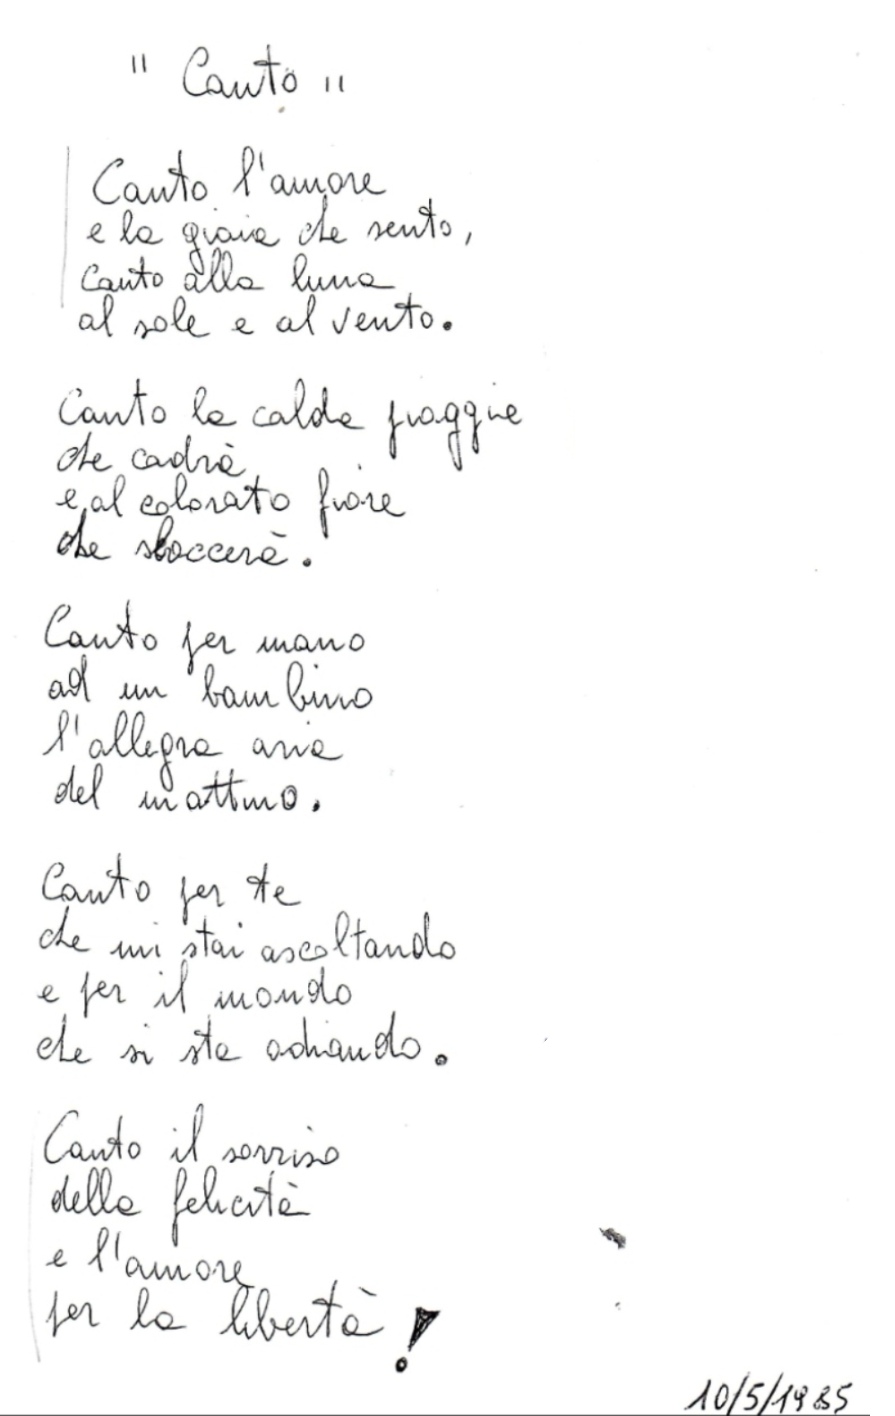 " Canto "
Canto l'amore
e la gioia che sento,
canto alla luna
al sole e al vento.
Canto la calda pioggia
che cadrà
e al colorato fiore
che sboccerà.
Canto per mano
ad un bambino
l'allegra aria
del mattino.
Canto per te
che mi stai ascoltando
e per il mondo
che si sta odiando.
Canto il sorriso
della felicità
e l'amore
per la libertà!
10/5/1985